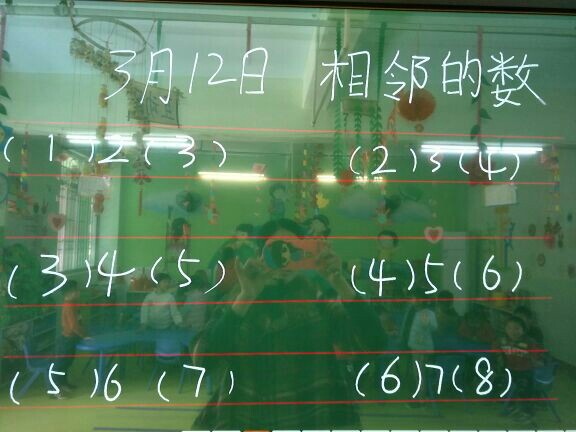 3月12日 相邻的数
(1)2(3) (2)3(4)
(3)4(5) (4)5(6)
(5)6(7) (6)7(8)